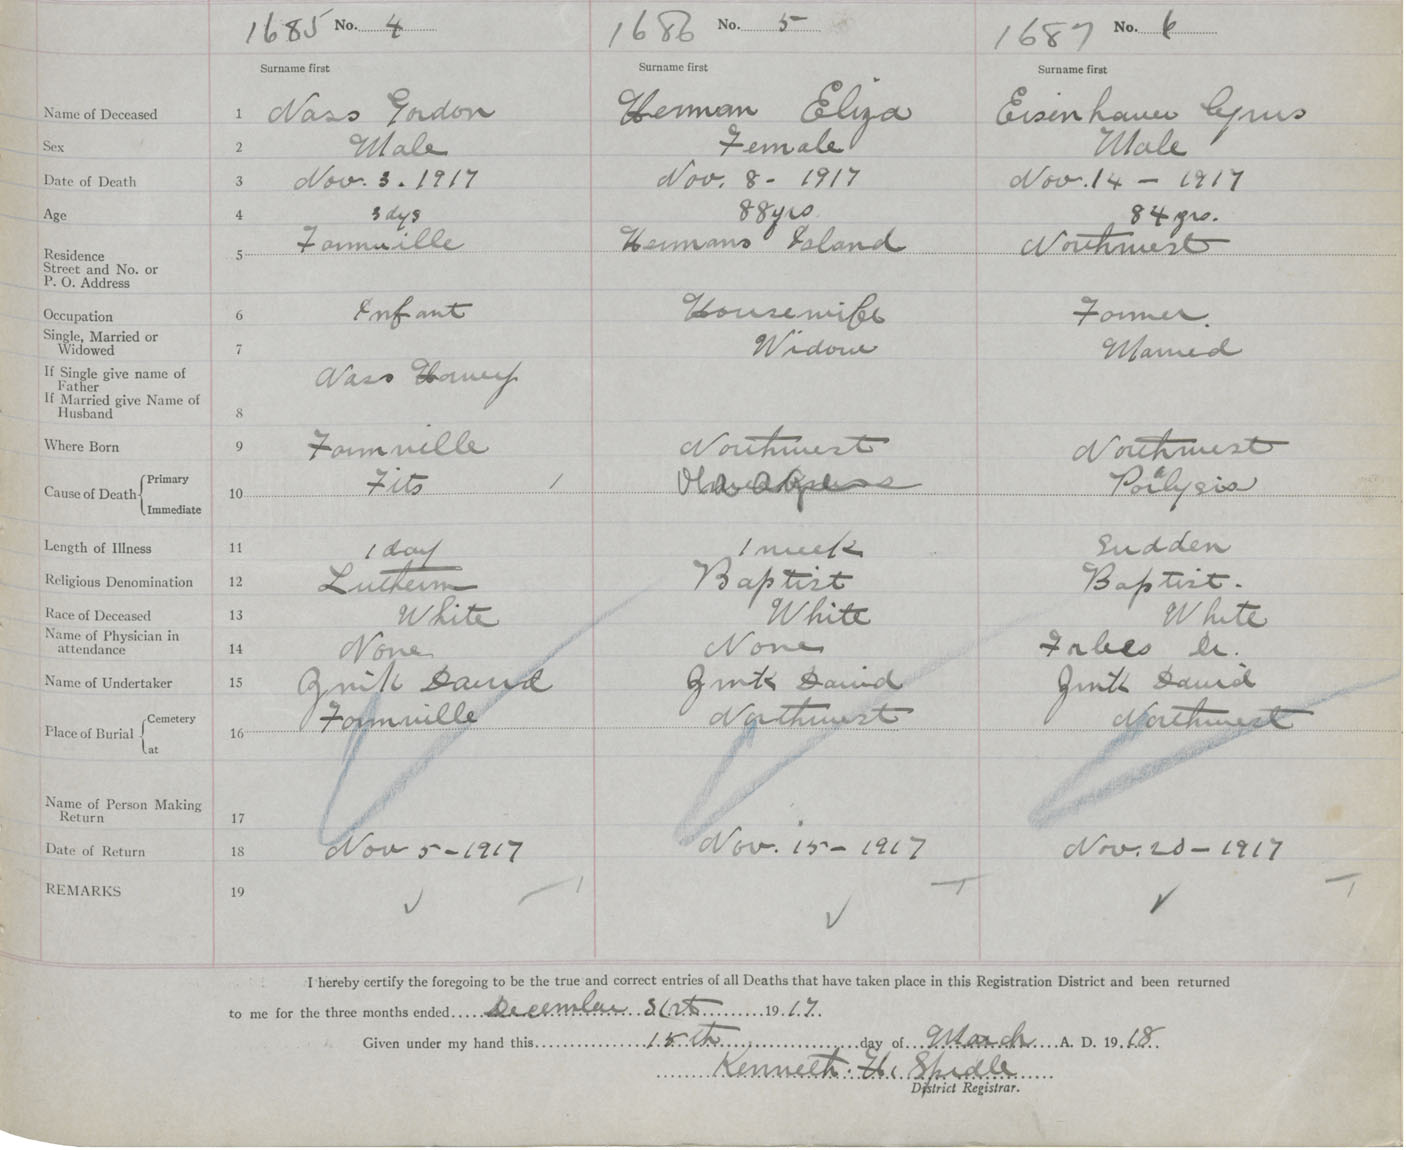 1685 No. 4 1686 No. 5 1687 No. 6
Surname first Surname first Surname first
Name of Deceased 1 Nass Gordon Herman Eliza Eisenhauer Cyrus
Sex 2 Male Female Male
Date of Death 3 Nov. 3. 1917 Nov. 8 - 1917 Nov. 14 - 1917
Age 4 3 dys 88 yrs 84 yrs.
Residence
Street and No. or
P. O. Address
5 Fauxville Hermans Island Northwest
Occupation 6 Infant Housewife Farmer.
Single, Married or
Widowed 7 Widow Married
If Single give name of
Father
Nass Harvey
If Married give Name of
Husband 8
Where Born 9 Northwest Northwest
Cause of Death { Primary
Immediate
10 Fits Old Age
Length of Illness 11 1 day 1 week Sudden
Religious Denomination 12 Lutheran Baptist Baptist.
Race of Deceased 13 White White White
Name of Physician in
attendance 14 None None Dr.
Name of Undertaker 15 Zwik David Zwik David Zwik David
Place of Burial { Cemetery
at
16 Northwest Northwest
Name of Person Making
Return 17
Date of Return 18 Nov 5 - 1917 Nov. 15 - 1917 Nov. 20 - 1917
REMARKS 19
I hereby certify the foregoing to be the true and correct entries of all Deaths that have taken place in this Registration District and been returned
to me for the three months ended December 31st 1917.
Given under my hand this 15th day of March A. D. 1918.
Kenneth H.
District Registrar.